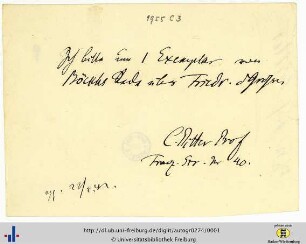 1925 C 3
Ich bitte um 1 Exemplar von
Böckhs Rede über Friedr. d Großen
C. Ritter Prof
Franz. Str. Nr 40.
http://dl.ub.uni-freiburg.de/diglit/autogr0274/0001
© Universitätsbibliothek Freiburg